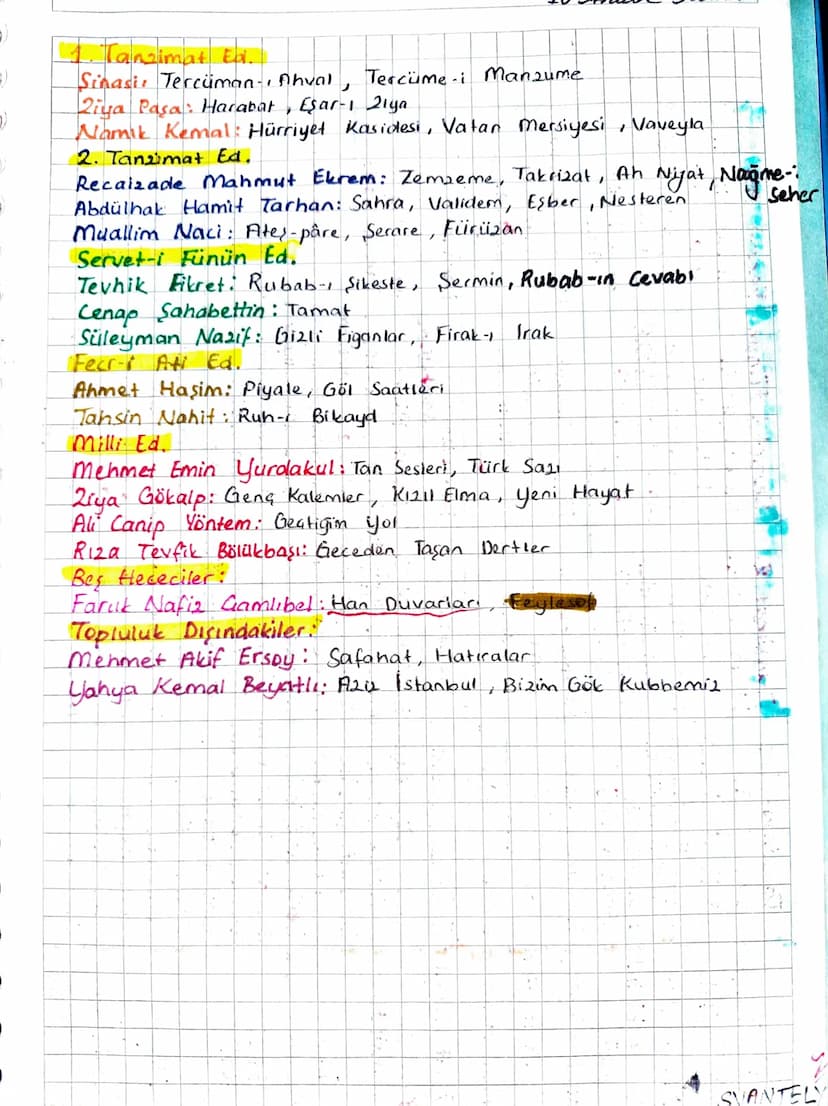 1. Tanzimat Ed.
Şinasi: Tercüman-ı Ahval, Tercüme-i Manzume
Ziya Paşa: Harabat, Eşar-ı Ziya
Namık Kemal: Hürriyet Kasidesi, Vatan Mersiyesi, Vaveyla
2. Tanzimat Ed.
Recaizade Mahmut Ekrem: Zemzeme, Takrizat, Ah Nijat, Nağme-i seher
Abdülhak Hamit Tarhan: Sahra, Validem, Eşber, Nesteren
Muallim Naci: Ateş-pâre, Şerare, Fürüzan
Servet-i Fünün Ed.
Tevhik Fikret: Rubab-ı Şikeste, Şermin, Rubab-ın Cevabı
Cenap Şahabettin: Tamat
Süleyman Nazif: Gizli Figanlar, Firak-ı Irak
Fecr-i Ati Ed.
Ahmet Haşim: Piyale, Göl Saatleri
Tahsin Nahit: Ruh-ı Bikayd
Milli Ed.
Mehmet Emin Yurdakul: Tan Sesleri, Türk Sazı
Ziya Gökalp: Genç Kalemler, Kızıl Elma, Yeni Hayat
Ali Canip Yöntem: Geçtiğim Yol
Rıza Tevfik Bölükbaşı: Geceden Taşan Dertler
Beş Hececiler:
Faruk Nafiz Çamlıbel: Han Duvarları,
Topluluk Dışındakiler:
Mehmet Akif Ersoy: Safahat, Hatıralar
Yahya Kemal Beyatlı: Aziz İstanbul, Bizim Gök Kubbemiz
SVANTELY